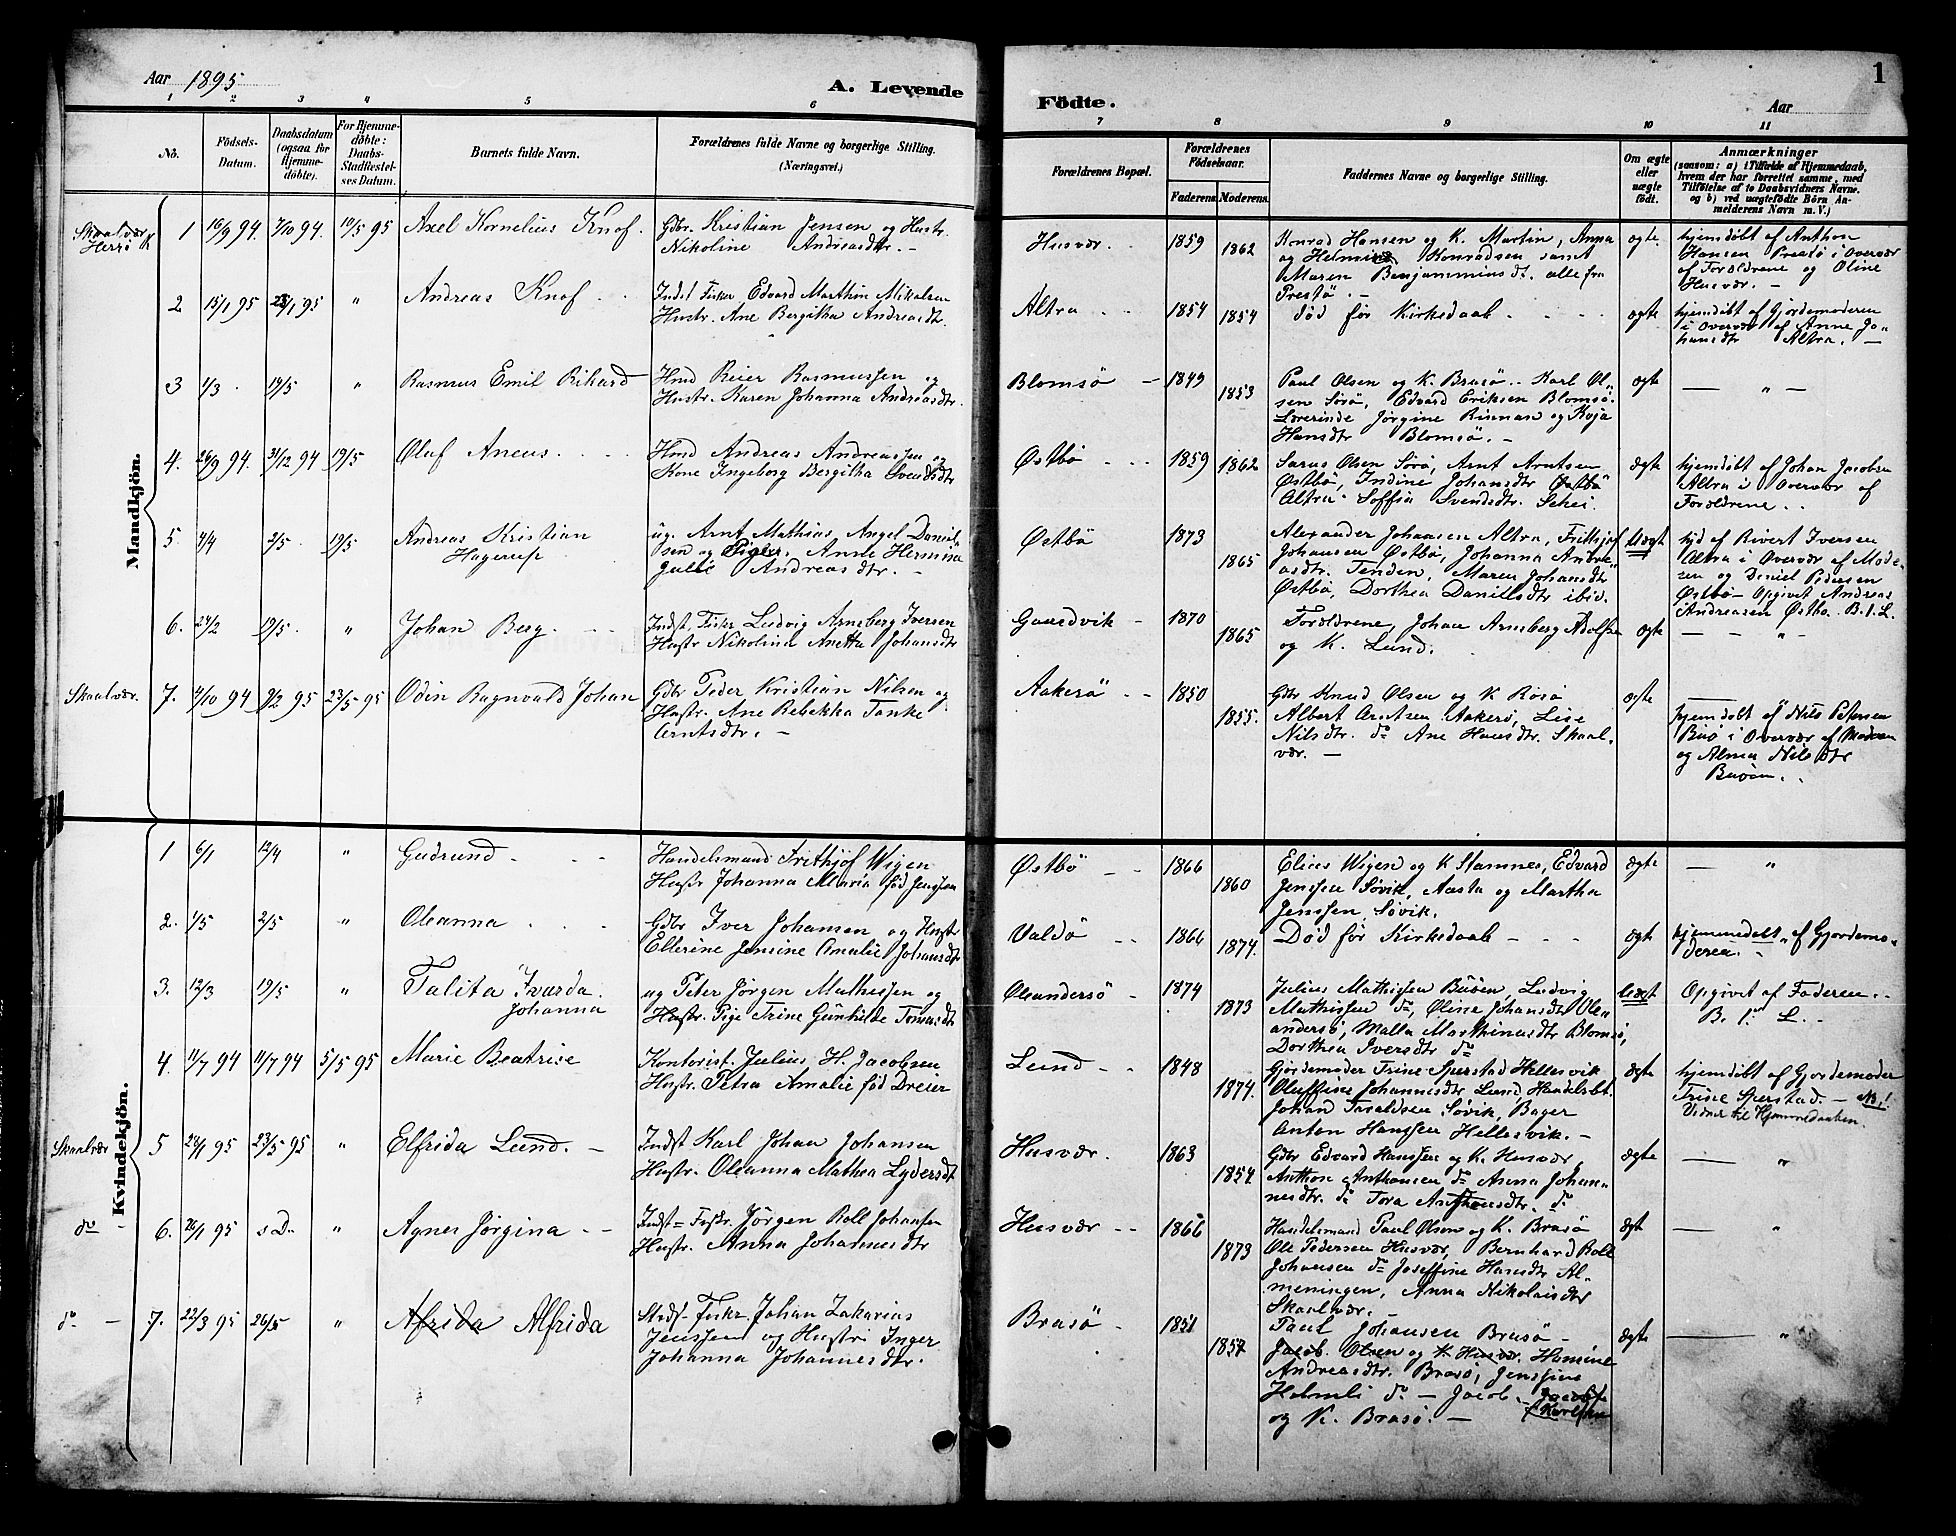 Aar 1895
A. Levende
Födte.
Aar
1
1 2 3 4 5 6 7 8 9 10 11
No.
Födsels-
Datum.
Daabsdatum
(ogsaa for
Hjemme-
döbte).
For Hjemme-
döbte:
Daabs-
Stadfæstel-
ses Datum.
Barnets fulde Navn.
Forældrenes fulde Navne og borgerlige Stilling.
(Næringsvei.)
Forældrenes Bopæl.
Forældrenes
Födselsaar.
Faderens. Moderens.
Faddernes Navne og borgerlige Stilling.
Om ægte
eller
uægte
födt.
Anmærkninger
(saasom: a) i Tilfælde af Hjemmedaab,
hvem der har forrettet samme, med
Tilföielse af to Daabsvidners Navne,
og b) ved uægtefödte Börn An-
melderens Navn m. V.)
Mandkjön.
Skaalvær
Herrö
1 16/9 94. 7/10 94. 12/5 95 Axel Kornelius Knof.
Gbr. Kristian Jensen og Hustr.
Nikoline Andreasdtr. –
Husvær. 1859 1862
Konrad Hansen og K. Martin, Anna
og Helmine Konradsen samt
Maren Benjaminsdt. alle fra
Prestö. –
ægte
hjemdöbt af Anthon
Hansen Prestö i Overvær
af Forældrene og Oline
Husvær. –
2 15/1 95 23/1 95 " Andreas Knof
Indst Fisker, Edvard Marthin Mikalsen
Hustr. Ane Bergitha Andreasdt.
Altra 1854 1854
död för Kirkedaab
ægte
hjemdöbt af Gjordemoderen
i Overvær af Anne Jo-
hansdtr Altra. –
3 1/3 19/5 " Rasmus Emil Rikard
Hmd Reier Rasmussen og
Hustr. Karen Johanna Andreasdtr.
Blomsö – 1849 1853
Paul Olsen og K. Brasö. Karl Ol-
sen Sörö, Edvard Eriksen Blomsö.
Lærerinde Jörgine Rinnan og Kaja
Hansdtr Blomsö. –
ægte
— " —
4. 26/9 94. 31/12 94 19/5 Oluf Aneus.
Hmd Andreas Andreassen og
Kone Ingeborg Bergitha Svendsdtr
Östbö 1859 1862
Sarus Olsen Sörö, Arnt Arntsen
Östbö, Indine Johansdtr Östbö
Altra Soffia Svendsdtr.
ægte
hjemdöbt af Johan Jacobsen
Altra i Overvær af
Forældrene.
5. 4/4 2/5 19/5 Andreas Kristian
Hagerup
ug. Arnt Mathias Angel Daniel-
sen og Pige, Anne Hermina
Julie Andreasdtr. –
Östbö 1873 1865
Alexander Johansen Altra, Frithjof
Johansen Östbö, Johanna Andre-
asdtr. Tenden, Maren Johansdtr
Östbö, Dorthea Danielsdtr ibid.
Uægt
hjd af Sivert Iversen
Altra i Overvær af Mode-
ren og Daniel Pedersen
Östbö – Opgivet Andreas
Andreasen Östbö. B. 1. L.
6. 24/2 19/5. " Johan Berg.
Indst Fisker Ludvig Arnsberg Iversen
Hustr Nikolina Anetta Johansdtr
Gaasedvik – 1870 1865
Forældrene, Johan Arnsberg Adolfsen
og K. Lund.
ægte
— " —
Skaalvær.
7. 4/10 94 9/2 95 23/5 95 Odin Ragnvald Johan
Gbr Peder Kristian Nilsen og
Hustr. Ane Rebekka Tanke
Arntsdtr. –
Aakerö 1850 1855.
Gbr Knud Olsen og K Rösö
Albert Arntsen Aakerö, Lise
Nilsdtr. do Ane Hansdtr. Skaal-
vær. –
ægte
hjemdöbt af Nils Petersen
Buö i Overvær af Moderen
og Alma Nilsdtr
Buöen.
Kvindekjön.
1 6/1 12/4 " Gudrund
Handelsmand Frithjof Wigen
Hustr Johanna Maria föd Jenssen
Östbö 1866 1860
Elias Wigen og K Stamnes, Edvard
Jenssen Sövik, Aasta og Martha
Jenssen, Sövik.
ægte
— "
2. 1/5 2/5 " Oleanna
Gbr Iver Johansen og Hustr
Ellerine Jensine Amalie Johansdt
Valdö 1866 1874.
Död för Kirkedaab
ægte
hjemmedöbt af Gjordemo-
deren.
3. 12/3 19/5 " Talita Ivarda
Johanna
ug Peter Jörgen Mathissen og
Hustr. Pige Trine Gunhilde Tomasdt
Oleandersö – 1874 1873
Julius Mathissen Buöen, Ludvig
Mathissen do, Oline Johansdtr Ole-
andersö, Malla Marthinusdtr Blomsö,
Dorthea Iversdtr do
Uægt
Opgivet af Faderen.
B. 1. L.
4. 11/7 94 11/7 94 5/5 95 Marie Beatrise
Kontorist Julius H. Jacobsen
Hustr. Petra Amalie föd Dreier
Lund 1848 1874.
Gjordemoder Trine Sperstad Hellesvik
Oluffine Johannesdtr Lund, Handelsbt.
Johand Sövik, Bager
Anton Hanssen Hellesvik. –
ægte
hjemdöbt af Gjordemoder
Trine Sperstad. – NB!
Vidner til Hjemmedaaben.
Skaalvær
5 22/1 95 23/5 95 " Elfrida Lund. –
Indst Karl Johan Johansen
Hustr. Oleanna Mathea Lydersdt
Husvær. 1863 1854
Gbr Edvard Hanssen og K. Husvær,
Anthon Anthonsen do Anna Johan-
nesdtr. do Tora Anthonsdtr. do
ægte
— "
do –
6. 26/1 95 s D. " Agnes Jörgina –
Indst = Fiskr. Jörgen Roll Johansen
Hustr. Anna Johannesdtr
Husvær 1866 1873
Handelsmand Paul Olsen og K. Brasö
Ole Pedersen Husvær, Bernhard Roll
Johansen do Joseffine Hansdtr Al-
meningen, Anna Nikolaisdtr
Skaalvær. –
ægt
— "
do –
7. 22/3 95 26/5 " Afrida Alfrida
Indst- Fiskr Johan Zakarias
Jenssen og Hustri Inger
Johanna Johannesdtr.
Brasö 1851 1857
Paul Johansen Brasö –
Jacob Olsen og K Husvær. Hemine
Andreasdtr. Brasö, Jenssine
do – Jacob
og K. Brasö. – Karlsen
ægte
— "